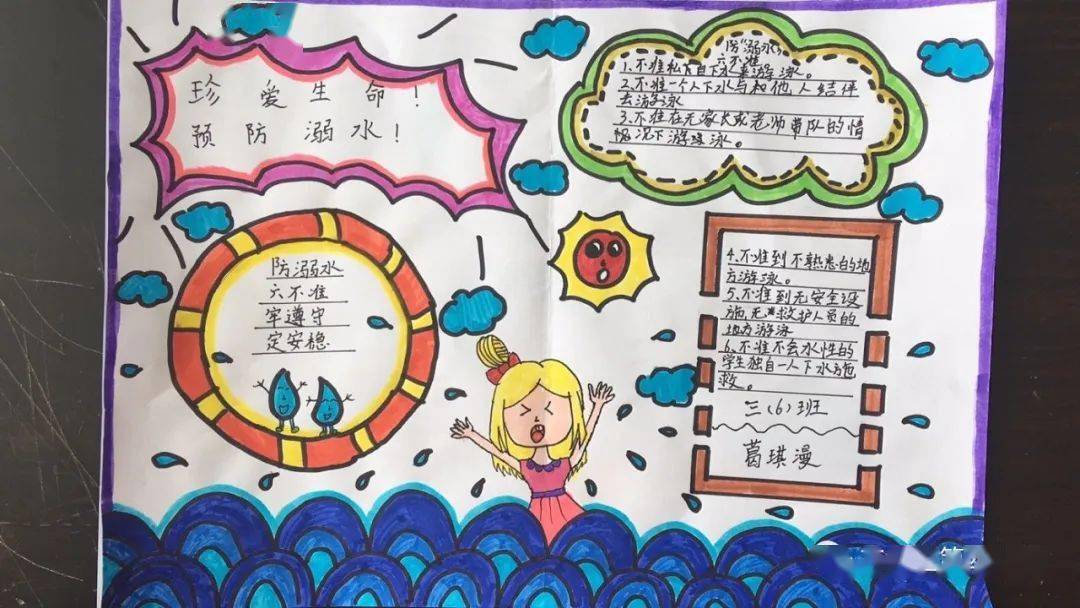 珍爱生命！
预防溺水！
防溺水
六不准
牢遵守
定安稳
防“溺水”
六不准
1.不准私下自下水游泳。
2.不准一个人下水与和他人结伴
去游泳
3.不准在无家长或老师带队的情
况下游泳。
4.不准到不熟悉的地
方游泳。
5.不准到无安全设
施,无救护人员的
地方游泳
6.不准不会水性的
学生独自一人下水施
救。
三(6)班
葛琪漫